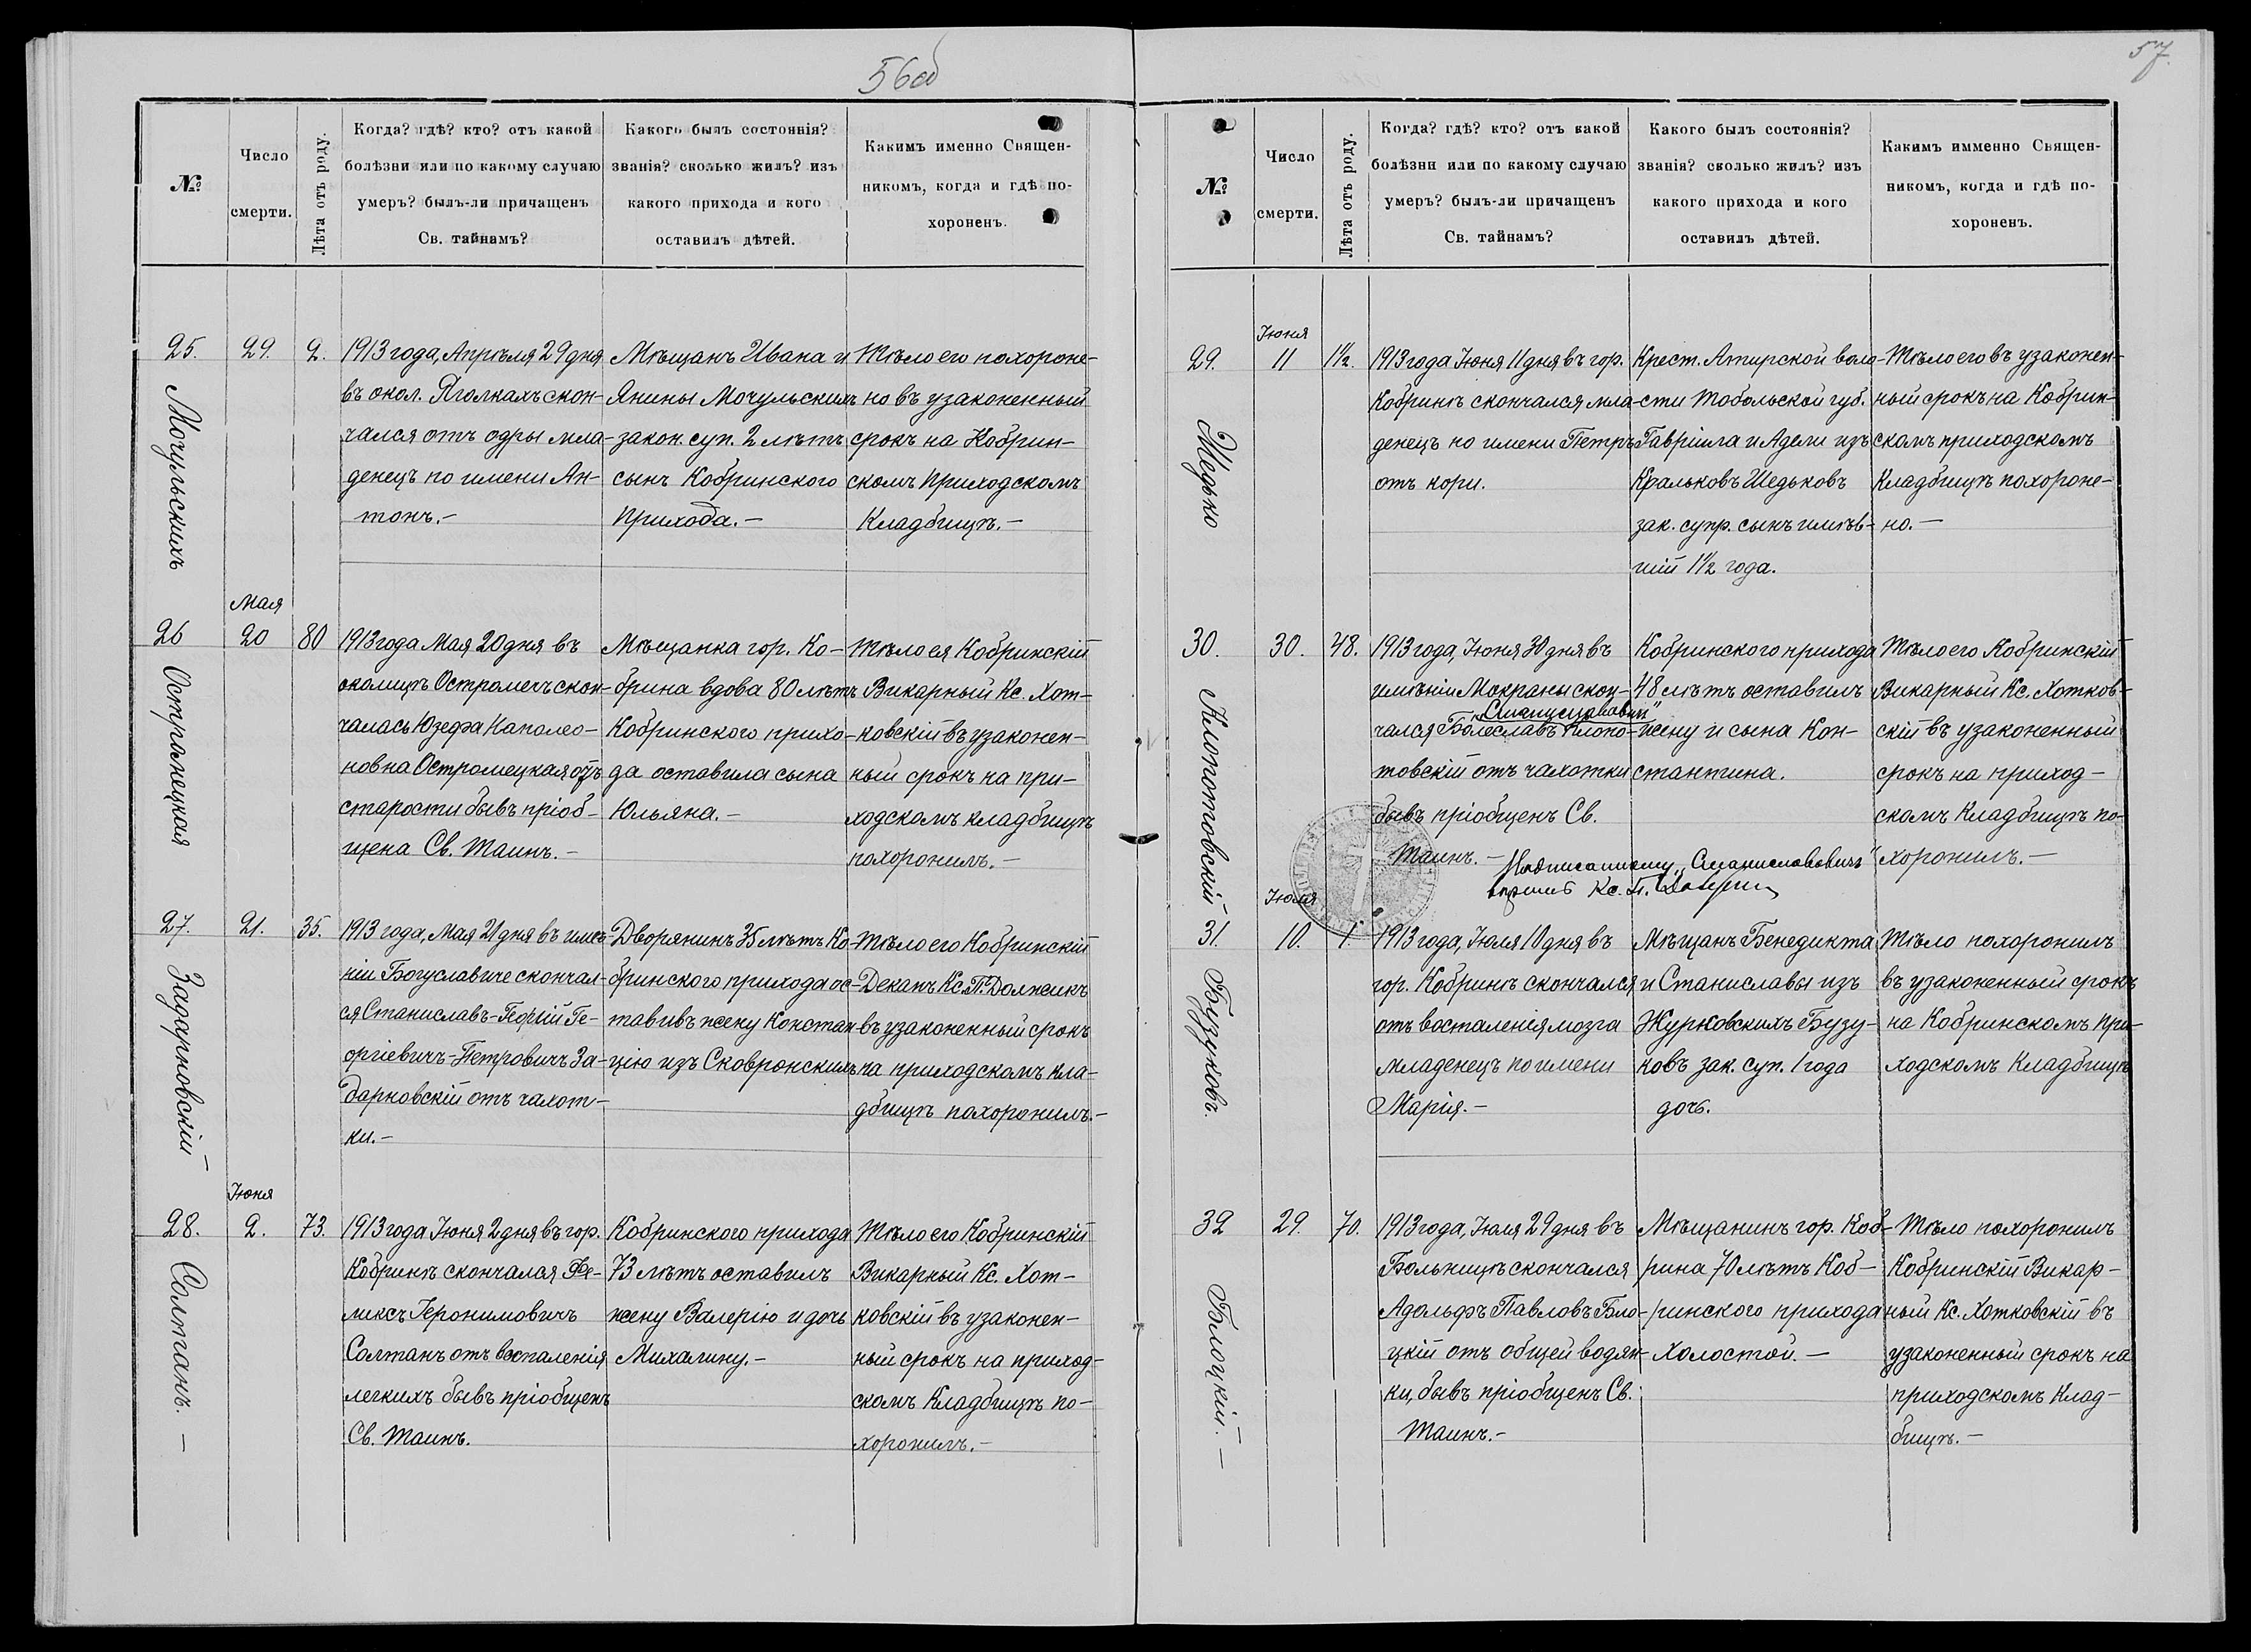 56об
№
Число
смерти.
Лѣта отъ роду.
Когда? гдѣ? кто? отъ какой
болѣзни или по какому случаю
умеръ? былъ-ли причащенъ
Св. тайнамъ?
Какого былъ состоянія?
званія? сколько жилъ? изъ
какого прихода и кого
оставилъ дѣтей.
Какимъ именно Священ-
никомъ, когда и гдѣ по-
хороненъ.
25.
Мочульскихъ
29.
2.
1913 года, Апрѣля 29 дня
въ окол. Яголкахъ скон-
чался отъ одры мла-
денецъ по имени Ан-
тонъ.-
Мѣщанъ Ивана и
Янины Мочульскихъ
закон. суп. 2 лѣтъ
сынъ Кобринского
Прихода.-
Тѣло его похороне-
но въ узаконенный
срокъ на Кобрин-
скомъ Приходскомъ
Кладбищѣ.-
26
Остромецкая
Мая
20
80
1913 года Мая 20 дня въ
околицѣ Остромечъ скон-
чалась Юзефа Наполео-
новна Остромецкая отъ
старости бывъ пріоб-
щена Св. Таинъ.-
Мѣщанка гор. Ко-
брина вдова 80 лѣтъ
Кобринского прихо-
да оставила сына
Юльяна.-
Тѣло ея Кобринскій
Викарный Кс. Хот-
ковскій въ узаконен-
ный срокъ на при-
ходскомъ кладбищѣ
похоронилъ.-
27.
Задарновскій
21.
35.
1913 года, Мая 21 дня въ имѣ-
ніи Богуславиче скончал-
ся Станиславъ-Георгій Ге-
оргіевичъ-Петровичъ За-
дарновскій отъ чахот-
ки.-
Дворянинъ 35 лѣтъ Ко-
бринского прихода ос-
тавивъ жену Констан-
цію изъ Сковронскихъ
Тѣло его Кобринскій
Деканъ Кс. П. Должикъ
въ узаконенный срокъ
на приходскомъ кла-
дбищѣ похоронилъ.-
28.
Солтанъ.-
Іюня
2.
73.
1913 года Іюня 2 дня въ гор.
Кобринѣ скончался Фе-
ликсъ Іеронимовичъ
Солтанъ отъ воспаленія
легкихъ бывъ пріобщенъ
Св. Таинъ.
Кобринского прихода
73 лѣтъ оставилъ
жену Валерію и дочь
Михалину.-
Тѣло его Кобринскій
Викарный Кс. Хот-
ковскій въ узаконен-
ный срокъ на приход-
скомъ Кладбищѣ по-
хоронилъ.-
57.
№
Число
смерти.
Лѣта отъ роду.
Когда? гдѣ? кто? отъ какой
болѣзни или по какому случаю
умеръ? былъ-ли причащенъ
Св. тайнамъ?
Какого былъ состоянія?
званія? сколько жилъ? изъ
какого прихода и кого
оставилъ дѣтей.
Какимъ имменно Священ-
никомъ, когда и гдѣ по-
хороненъ.
29.
Шедько
Іюня
11
1½.
1913 года Іюня 11 дня въ гор.
Кобринѣ скончался мла-
денецъ по имени Петръ
отъ кори.
Крест. Атирской воло-
сти Тобольской губ.
Гавріила и Адели изъ
Кральковъ Шедьковъ
зак. супр. сынъ имѣв-
шій 1½ года.
Тѣло его въ узаконен-
ный срокъ на Кобрин-
скомъ приходскомъ
Кладбищѣ похороне-
но.-
30.
Клопотовскій
30.
48.
1913 года, Іюня 30 дня въ
имѣніи Мокраны скон-
„Станиславовичъ“
чался Болеславъ Клопо-
товскій отъ чахотки
бывъ пріобщенъ Св.
Таинъ.-
Кобринского прихода
48 лѣтъ оставилъ
жену и сына Кон-
стантина.
Тѣло его Кобринскій
Викарный Кс. Хотков-
скій въ узаконенный
срокъ на приход-
скомъ Кладбищѣ по-
хоронилъ.-
Надписанному „Станиславовичъ“
Кс. П.
31.
Бузуковъ.
Іюля
10.
1.
1913 года, Іюля 10 дня въ
гор. Кобринѣ скончался
отъ воспаленія мозга
младенецъ по имени
Марія.-
Мѣщанъ Бенедикта
и Станиславы изъ
Журковскихъ Бузу-
ковъ зак. суп. 1 года
дочь.
Тѣло похоронилъ
въ узаконенный срокъ
на Кобринскомъ При-
ходскомъ Кладбищѣ
32
Блоцкій.-
29.
70.
1913 года, Іюля 29 дня въ
Больницѣ скончался
Адольфъ Павловъ Бло-
цкій отъ общей водян-
ки, бывъ пріобщенъ Св.
Таинъ.-
Мѣщанинъ гор. Коб-
рина 70 лѣтъ Коб-
ринского прихода
Холостой.-
Тѣло похоронилъ
Кобринскій Викар-
ный Кс. Хотковскій въ
узаконенный срокъ на
приходскомъ Клад-
бищѣ.-